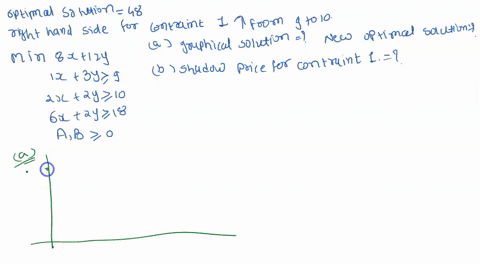 optimal solution = 48
right hand side for contraint 1 ↑ from 9 to 10
Min 8x+12y
(a) graphical solution = ? New optimal solution = ?
1x + 3y ≥ 9
(b) shadow price for contraint 1. = ?
2x + 2y ≥ 10
6x + 2y ≥ 18
A, B ≥ 0
(a)